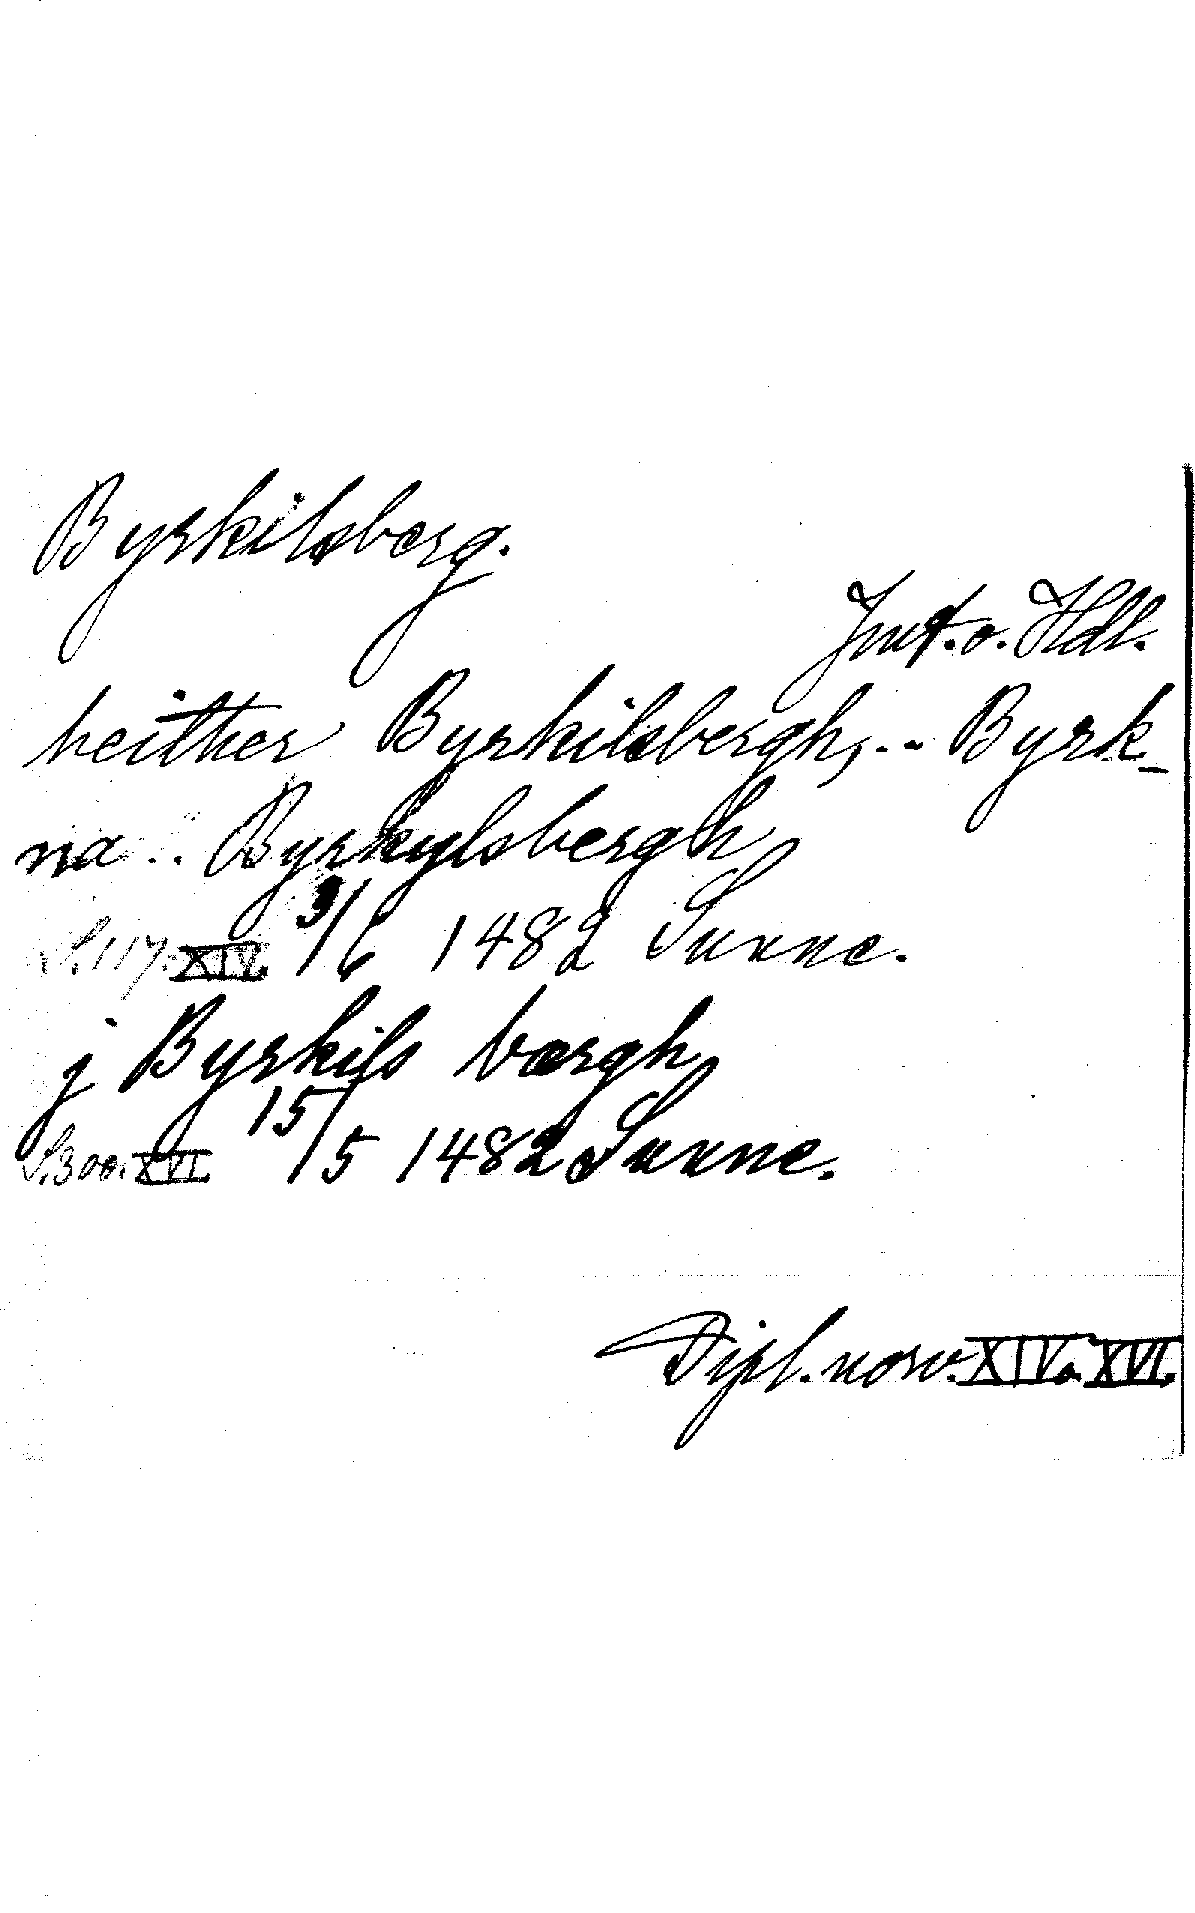 Byrkilsberg.
Jmt. o. Hdl.
heither Byrkilsbergh, .. Byrk-
na .. Byrkylsbergh
S. 117. XIV. 3/6 1482 Sunne.
j Byrkils bærgh
S. 300. XVI. 15/5 1482 Sunne.
Dipl. norv. XIV o. XVI.